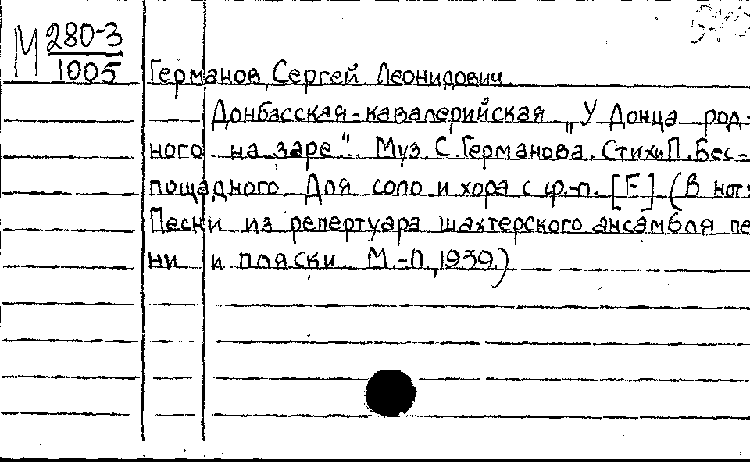 М 280-3
1005
Германов, Сергей Леонидович.
Донбасская-кавалерийская „У Донца род-
ного на заре". Муз. С. Германова. Стихи П. Бес-
пощадного. Для соло и хора с ф.-п. [F] (В нот:
Песни из репертуара шахтерского ансамбля пе
ни и пляски М.-Л., 1939.)